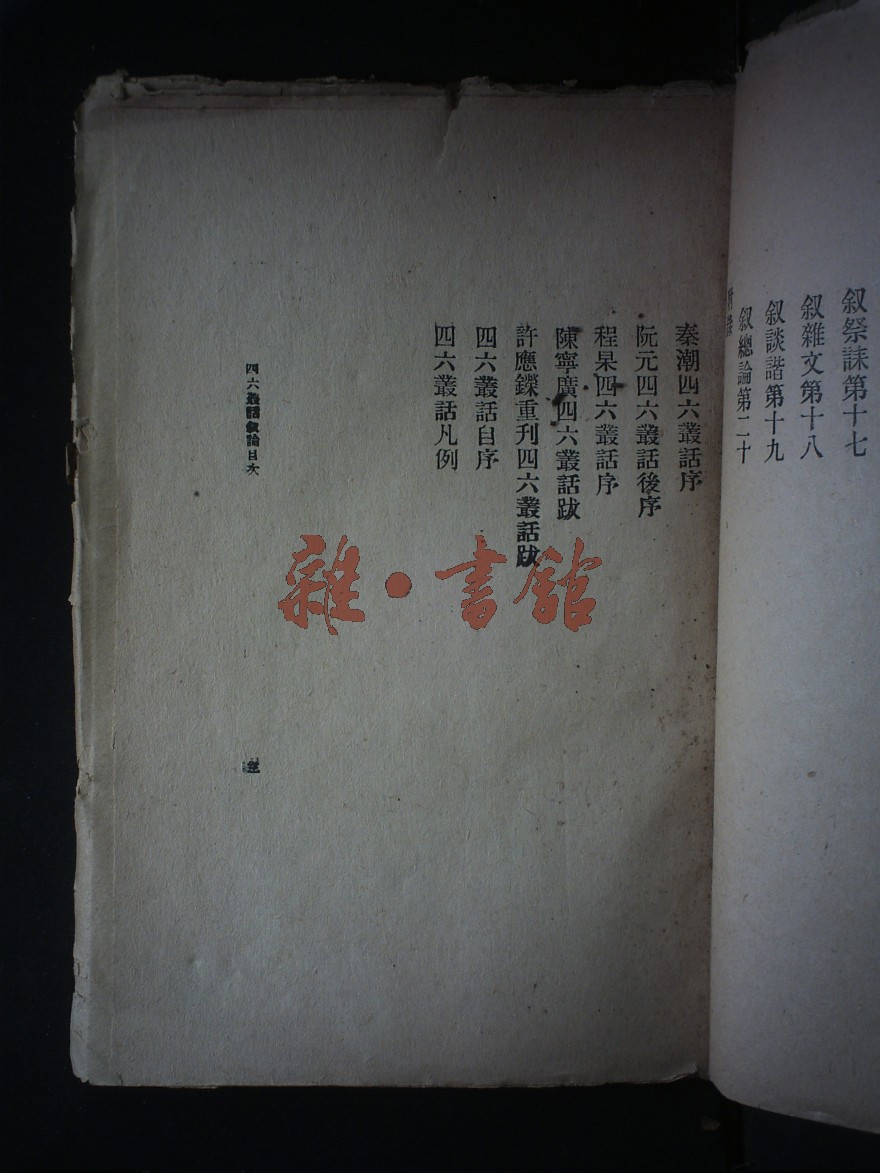 叙祭誄第十七
叙雜文第十八
叙談諧第十九
叙總論第二十
附錄
秦潮四六叢話序
阮元四六叢話後序
程杲四六叢話序
陳寧廣四六叢話跋
許應鑅重刊四六叢話跋
四六叢話自序
四六叢話凡例
四六叢話叙論目次
三
雜·書館